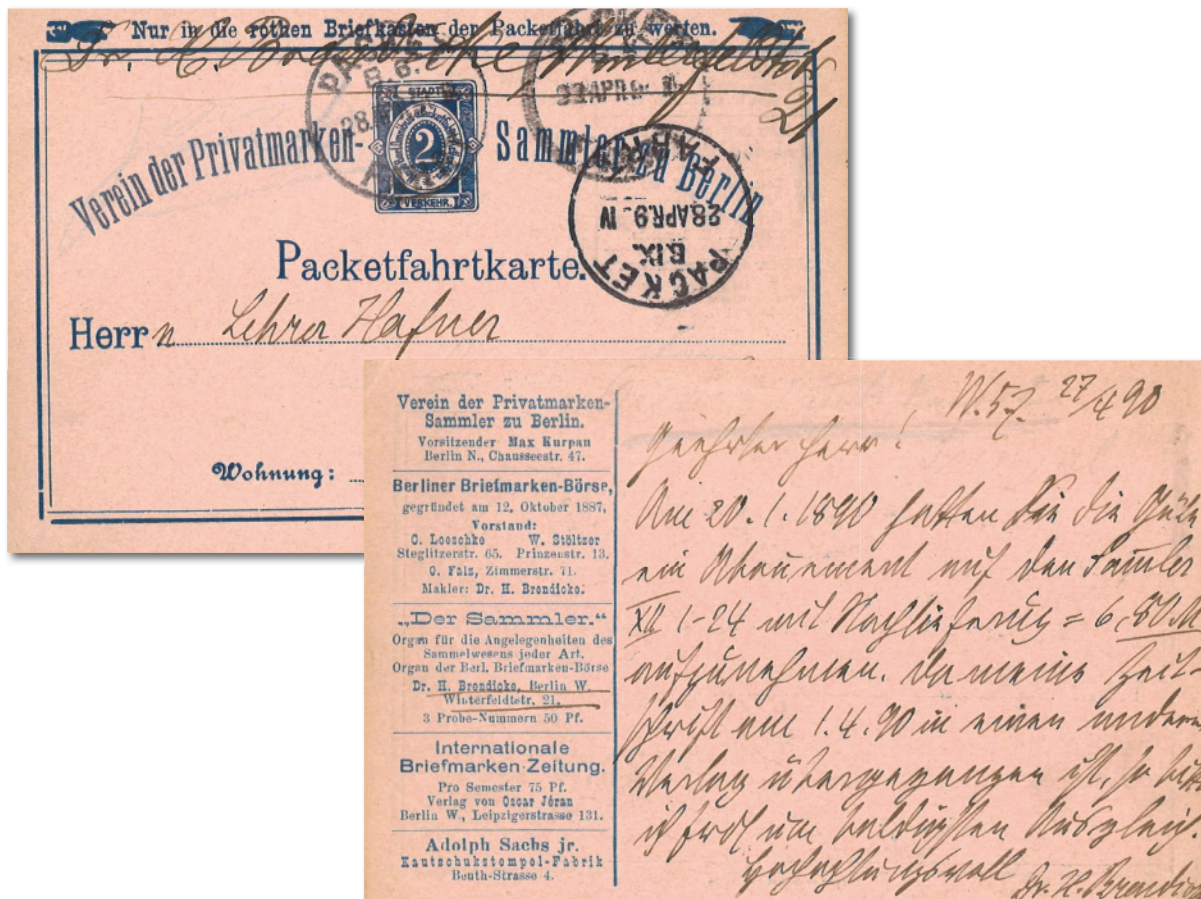 Nur in die rothen Briefkasten der Packetfahrt zu werfen.
Dr. H. Brendicke, Winterfeldtstr.
21
STADT-
2
VERKEHR.
Verein der Privatmarken-Sammler zu Berlin
28 APR. 9 IV
B.IX.
PACKET
Packetfahrtkarte.
Herrn Lehrer Hafner
Wohnung:
Verein der Privatmarken-
Sammler zu Berlin.
Vorsitzender Max Kurpan
Berlin N., Chausseestr. 47.
Berliner Briefmarken-Börse,
gegründet am 12. Oktober 1887.
Vorstand:
C. Loeschke W. Stöltzer
Steglitzerstr. 65. Prinzenstr. 13.
O. Falz, Zimmerstr. 71.
Makler: Dr. H. Brendicke.
„Der Sammler.“
Organ für die Angelegenheiten des
Sammelwesens jeder Art.
Organ der Berl. Briefmarken-Börse
Dr. H. Brendicke, Berlin W.
Winterfeldtstr. 21.
3 Probe-Nummern 50 Pf.
Internationale
Briefmarken-Zeitung.
Pro Semester 75 Pf.
Verlag von Oscar Jéran
Berlin W., Leipzigerstrasse 131.
Adolph Sachs jr.
Kautschukstempel-Fabrik
Beuth-Strasse 4.
W. 57. 27/4 90
Geehrter Herr!
Am 20. 1. 1890 hatten Sie die Güte
ein Abonnement auf den Sammler
XII 1-24 mit Nachlieferung = 6,80 M
aufzunehmen. Da meine Zeit-
schrift am 1. 4. 90 in einen andern
Verlag übergegangen ist, so bitte
ich um baldigsten Ausgleich
Hochachtungsvoll Dr. H. Brendicke